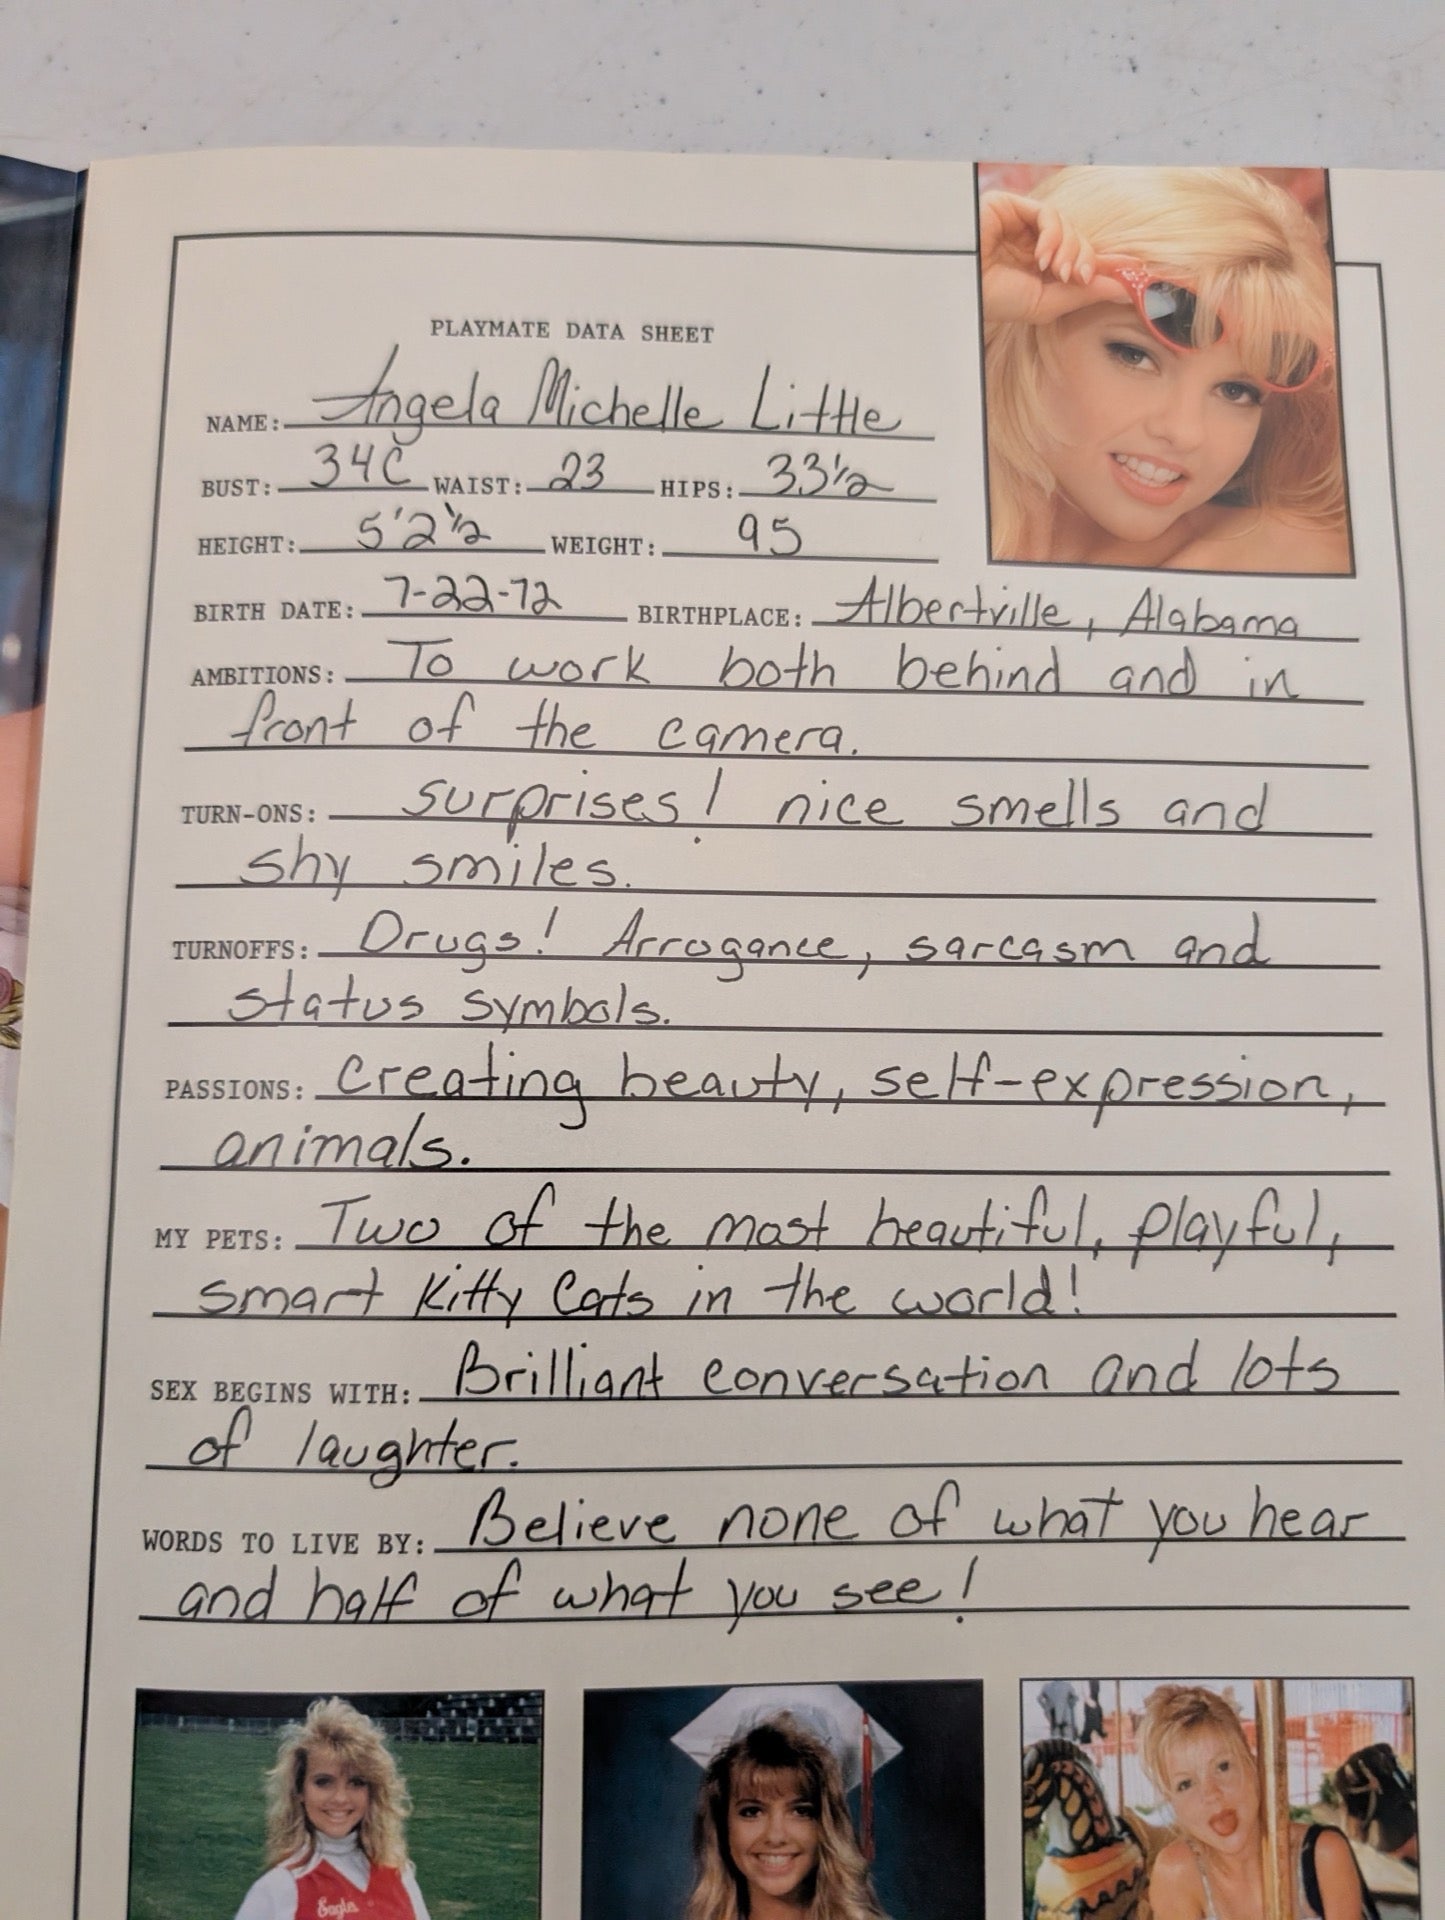 PLAYMATE DATA SHEET
NAME: Angela Michelle Little
BUST: 34C WAIST: 23 HIPS: 33 1/2
HEIGHT: 5'2 1/2 WEIGHT: 95
BIRTH DATE: 7-22-72 BIRTHPLACE: Albertville, Alabama
AMBITIONS: To work both behind and in
front of the camera.
TURN-ONS: surprises! nice smells and
shy smiles.
TURNOFFS: Drugs! Arrogance, sarcasm and
status symbols.
PASSIONS: Creating beauty, self-expression,
animals.
MY PETS: Two of the most beautiful, playful,
smart Kitty Cats in the world!
SEX BEGINS WITH: Brilliant conversation and lots
of laughter.
WORDS TO LIVE BY: Believe none of what you hear
and half of what you see!
Eagles